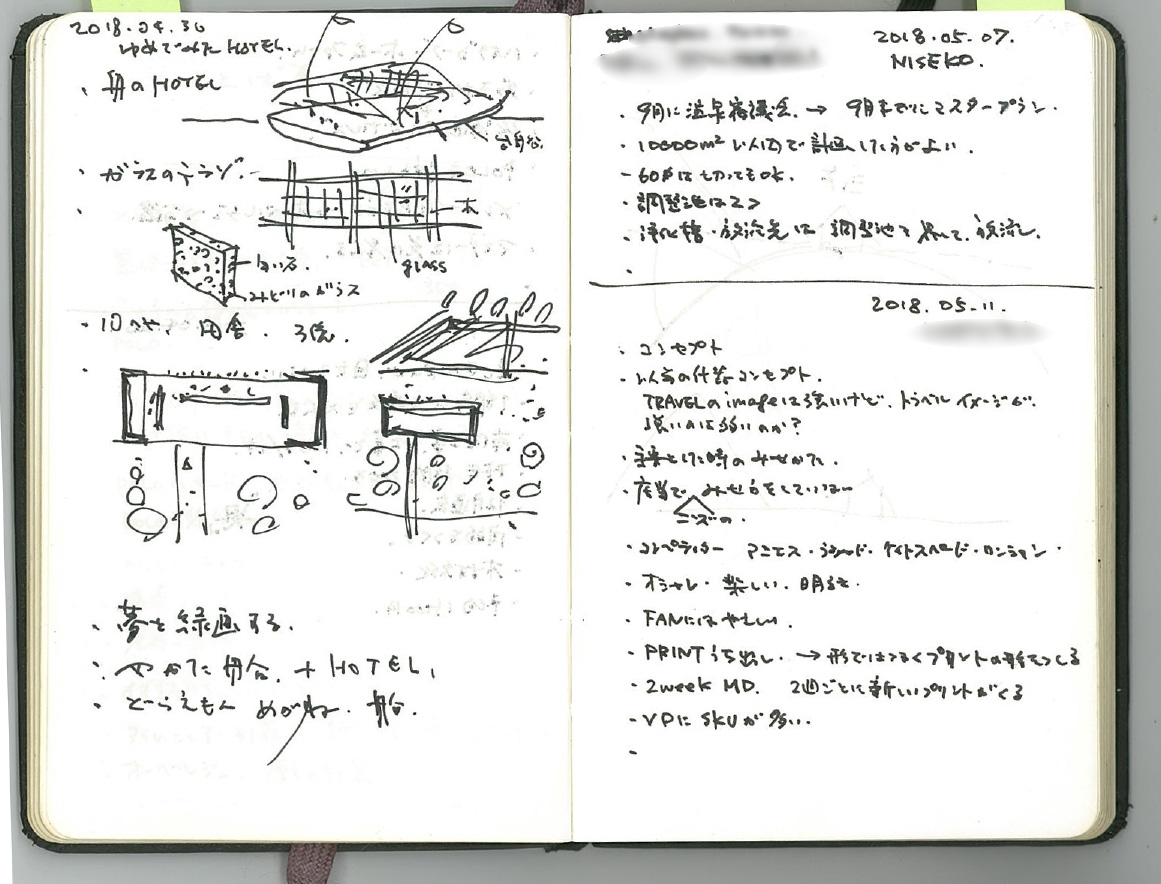 2018.04.30
ゆめでみた HOTEL.
・舟のHOTEL
・ガラスのテラゾ.
木
glass
白い石.
みどりのガラス
・10へや. 田舎. 3億.
・夢を録画する.
・やかた舟. + HOTEL.
・どらえもん めがね.
2018.05.07.
NISEKO.
・9月に 審議会. → 9月までにマスタープラン.
・10000m² 以内で計画したほうがよい.
・は切ってもOK.
・調整池は2つ
・浄化槽・放流先は 調整池で 放流し.
2018.05.11.
・コンセプト
・以前の什器コンセプト.
TRAVELのimageは強いけど. トラベル イメージが.
強いのは弱いのか?
・時のみせかた.
・みせ方をしている
・コンペティター アニエス・ケイトスペード・ロンシャン.
・オシャレ. 楽しい. 明るさ.
・FANにはやさしい.
・PRINTうち出し. → 形ではなくプリントの
・2week MD. 2週ごとに新しいプリントがくる
・VPに SKUが多い.